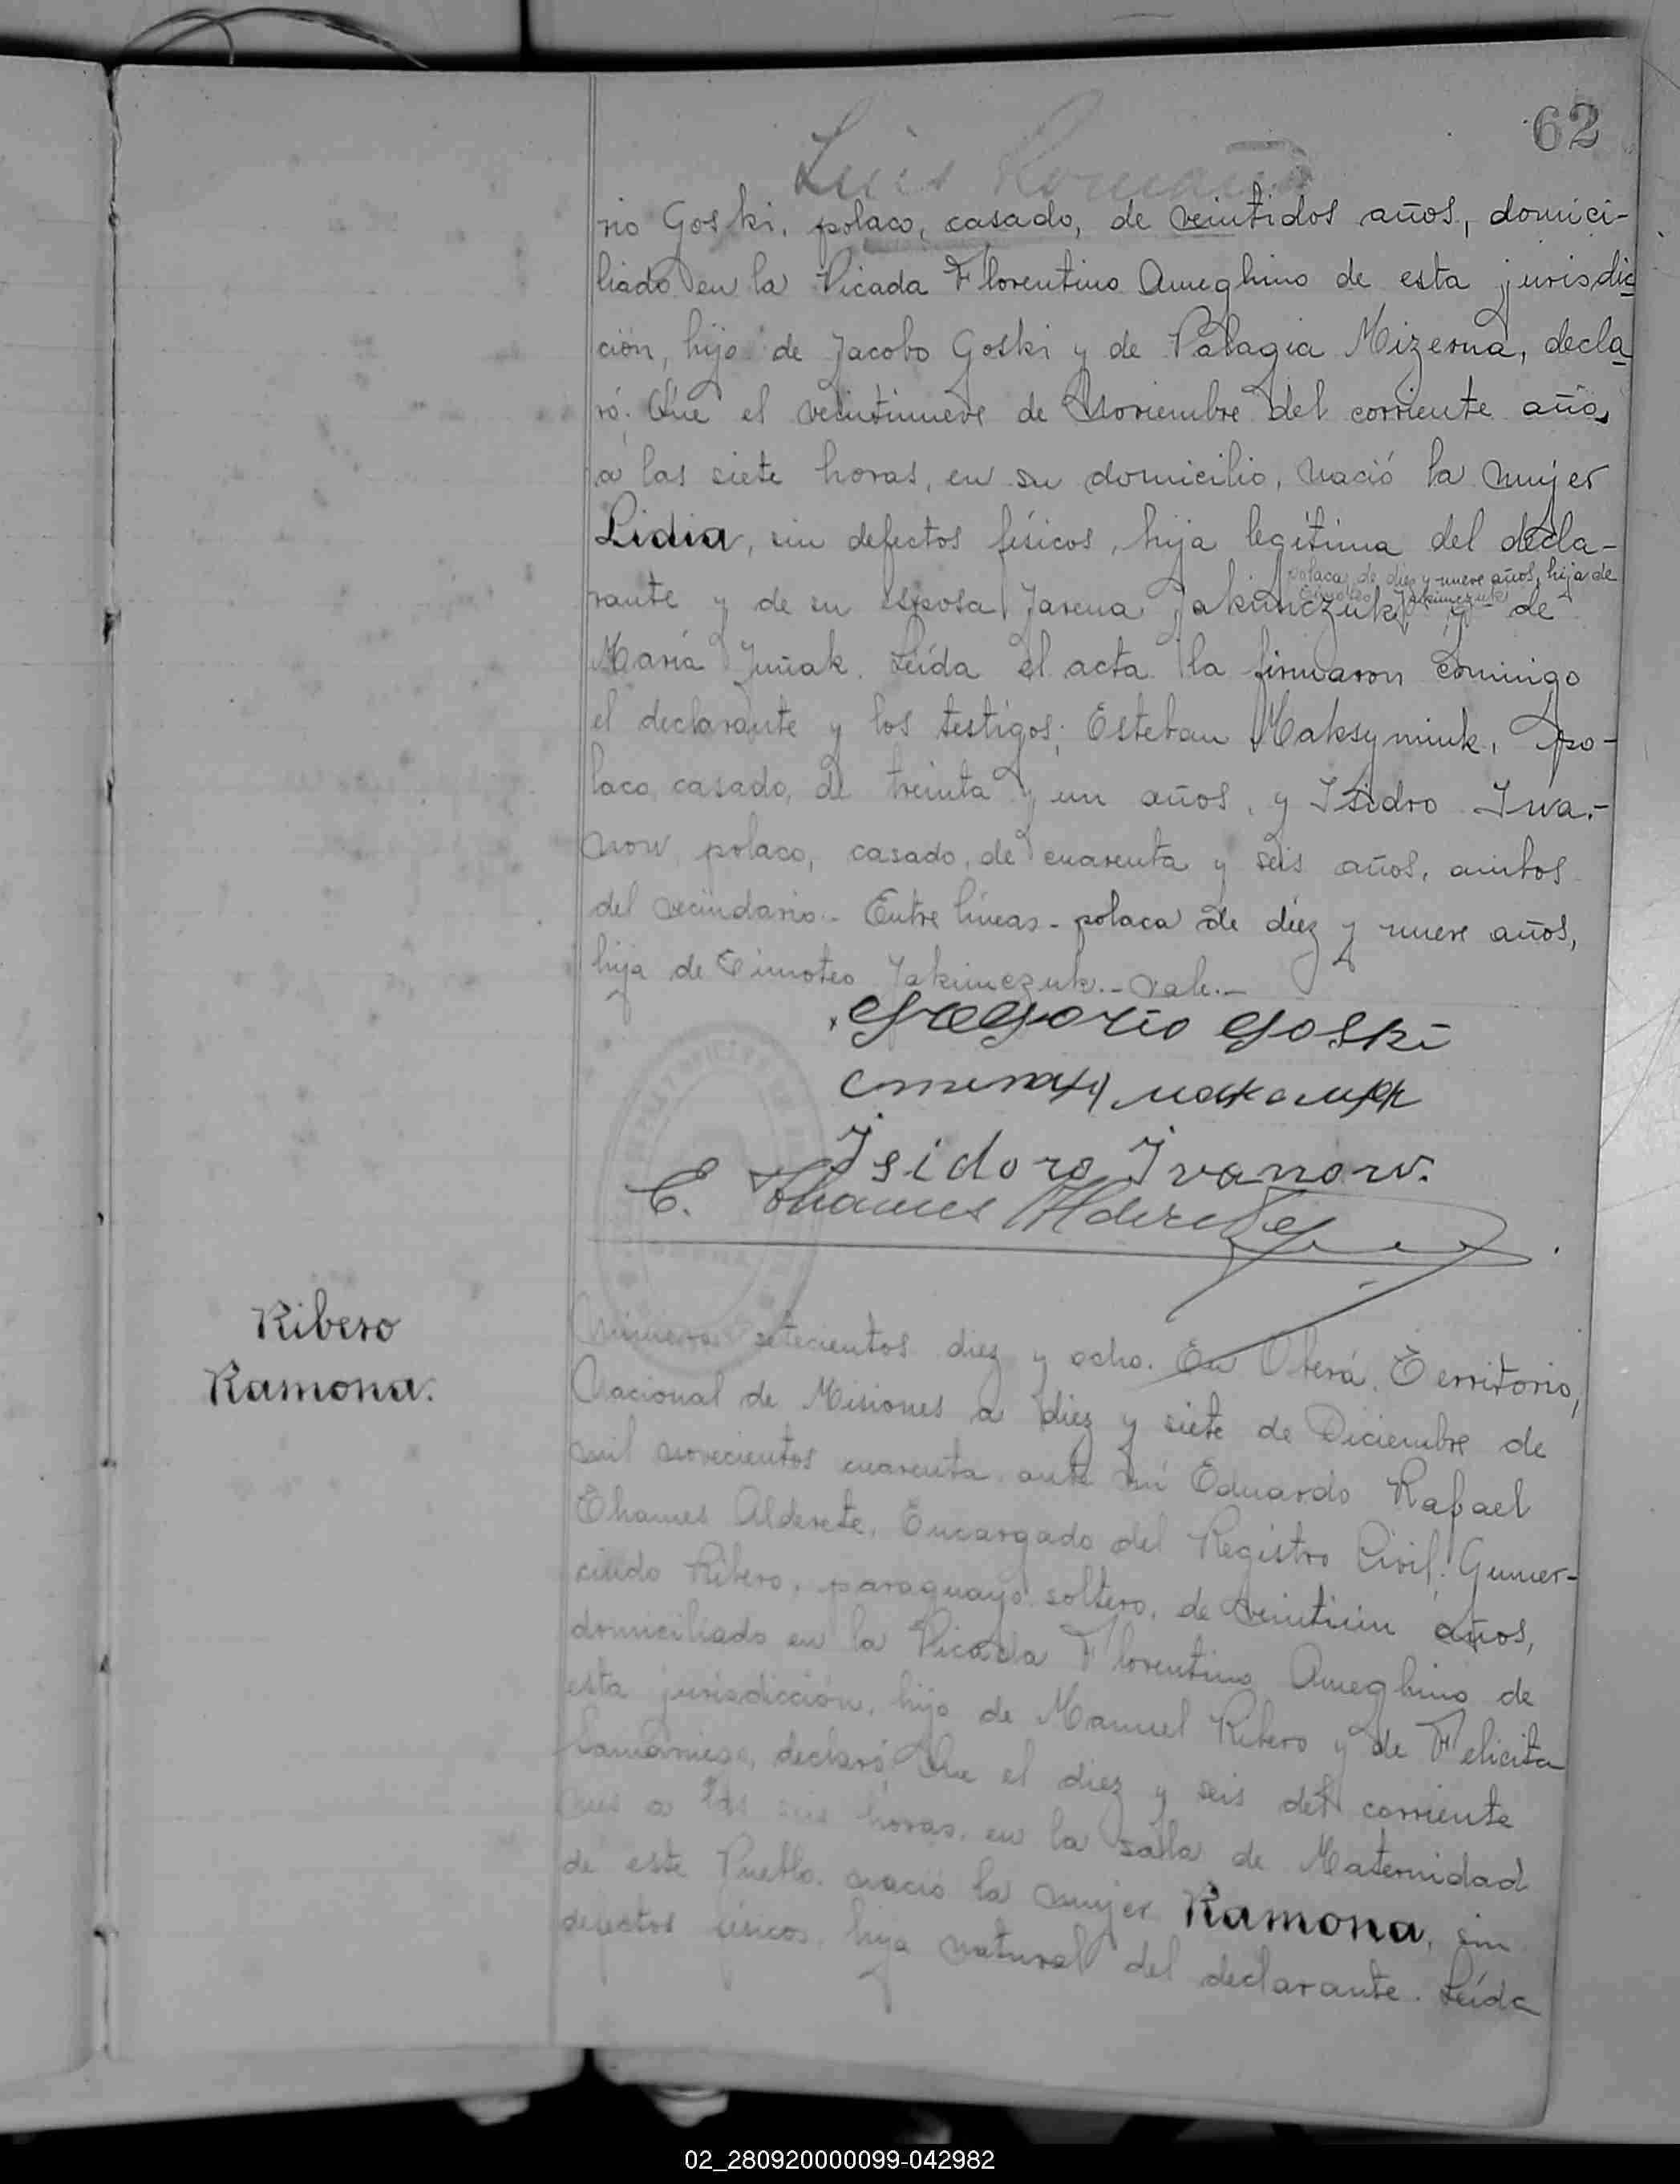 62
Luis Romano
rio Goski, polaco, casado, de veintidos años, domici-
liado en la Picada Florentino Ameghino de esta jurisdic
ción, hijo de Jacobo Goski y de Palagia Mizerna, decla
ró: Que el veintinueve de Noviembre del corriente año,
a las siete horas, en su domicilio, nació la mujer
Lidia, sin defectos físicos, hija legítima del decla-
polaca, de diez y nueve años, hija de
Timoteo Jakimczuk
rante y de su esposa Jarena Jakimczuk, y de
María Juñak. Leída el acta la firmaron conmigo
el declarante y los testigos: Esteban Maksymiuk, po-
laco, casado, de treinta y un años, y Isidro Iwa-
now, polaco, casado, de cuarenta y seis años, ambos
del vecindario.- Entre líneas - polaca de diez y nueve años,
hija de Timoteo Jakimczuk.- Vale.-
Gregorio Goski
Isidoro Ivanow.
E. Thames Alderete
Ribero
Ramona.
Número setecientos diez y ocho. En Oberá, Territorio,
Nacional de Misiones a diez y siete de Diciembre de
mil novecientos cuarenta, ante mí Eduardo Rafael
Thames Alderete, Encargado del Registro Civil: Gumer-
cindo Ribero, paraguayo, soltero, de veintiún años,
domiciliado en la Picada Florentino Ameghino de
esta jurisdicción, hijo de Manuel Ribero y de Felicita
declaró: Que el diez y seis del corriente
mes a las seis horas, en la salla de Maternidad
de este Pueblo, nació la mujer Ramona, sin
defectos físicos, hija natural del declarante. Leída
02_280920000099-042982